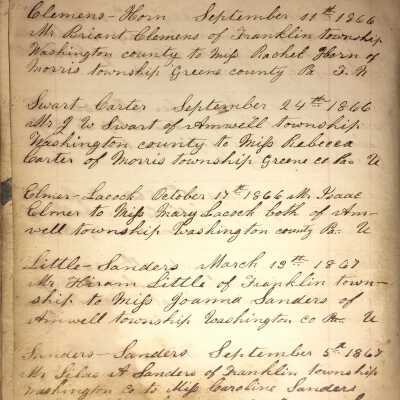 Clemens-Horn September 11th 1866
Mr Briant Clemens of Franklin township
Washington county to Miss Rachel Horn of
Morris township Greene county Pa
Swart Carter September 24th 1866
Mr J W Swart of Amwell township
Washington county to Miss Rebecca
Carter of Morris township Greene co Pa U
Elmer-Lacock October 17th 1866 Mr Isaac
Elmer to Miss Mary Lacock both of Am-
well township Washington county Pa U
Little-Sanders March 13th 1867
Mr Hiram Little of Franklin town-
ship to Miss Joanna Sanders of
Amwell township Washington co Pa U
Sanders-Sanders September 5th 1867
Mr Silas A Sanders of Franklin township
Washington Co to Miss Caroline Sanders